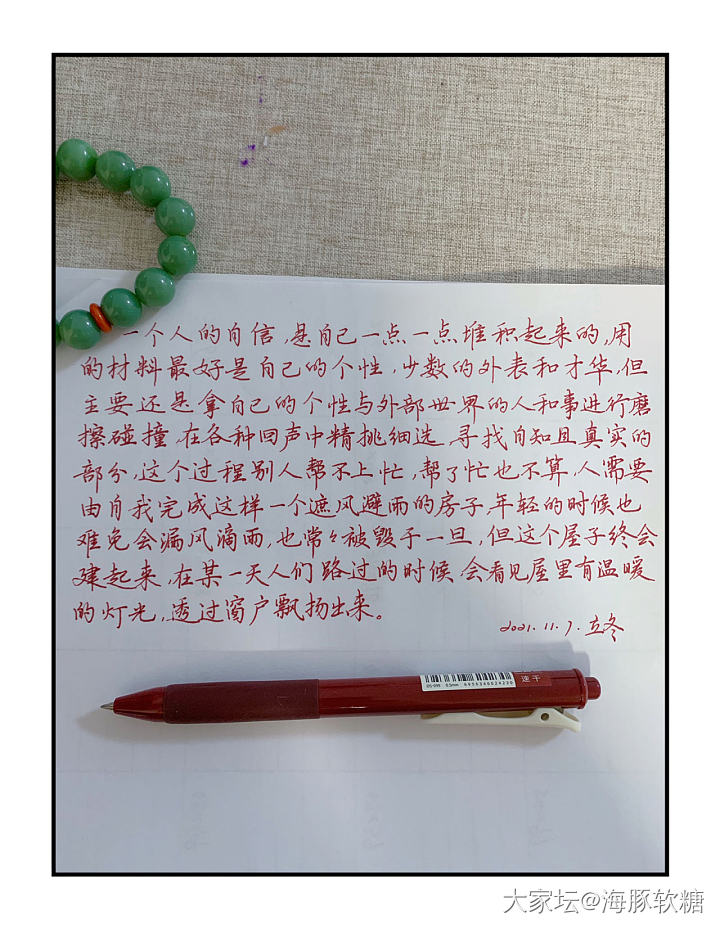 一个人的自信，是自己一点一点堆积起来的，用
的材料最好是自己的个性，少数的外表和才华，但
主要还是拿自己的个性与外部世界的人和事进行磨
擦碰撞，在各种回声中精挑细选，寻找自知且真实的
部分，这个过程别人帮不上忙，帮了忙也不算，人需要
由自我完成这样一个遮风避雨的房子，年轻的时候也
难免会漏风滴雨，也常々被毁于一旦，但这个屋子终会
建起来，在某一天人们路过的时候，会看见屋里有温暖
的灯光，透过窗户飘扬出来。
2021.11.7.立冬
速干
大家坛@海豚软糖